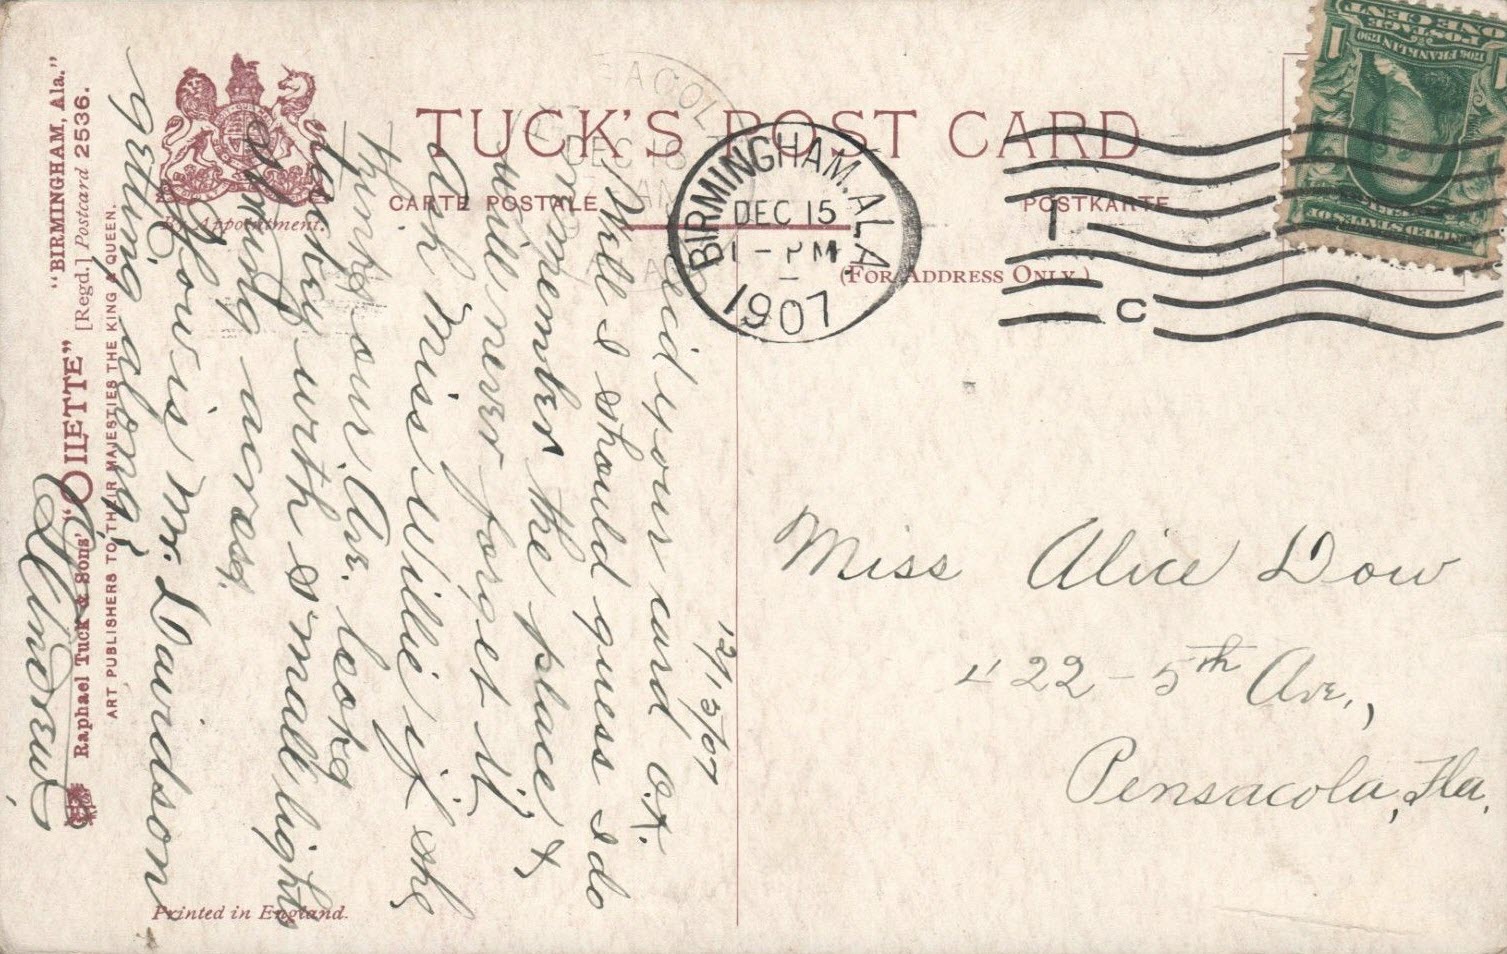 TUCK'S POST CARD
CARTE POSTALE.
POSTKARTE
(FOR ADDRESS ONLY.)
By Appointment.
"BIRMINGHAM, Ala."
[Regd.] Postcard 2536.
Raphael Tuck & Sons' "OILETTE"
ART PUBLISHERS TO THEIR MAJESTIES THE KING & QUEEN.
Printed in England.
BIRMINGHAM. ALA
DEC 15
1 - PM
1907
DEC 16
1
C
ONE CENT
POSTAGE
1706 FRANKLIN 1790
UNITED STATES OF
12/15/07
Recid your card O.K.
Well I should guess I do
remember the place &
will never forget it.
Ask Miss Willie if she
thinks our Ave. looks
pickey with small lights
strung across.
How is Mr. Davidson
getting along?
Miss Alice Dow
422 - 5th Ave.,
Pensacola, Fla.